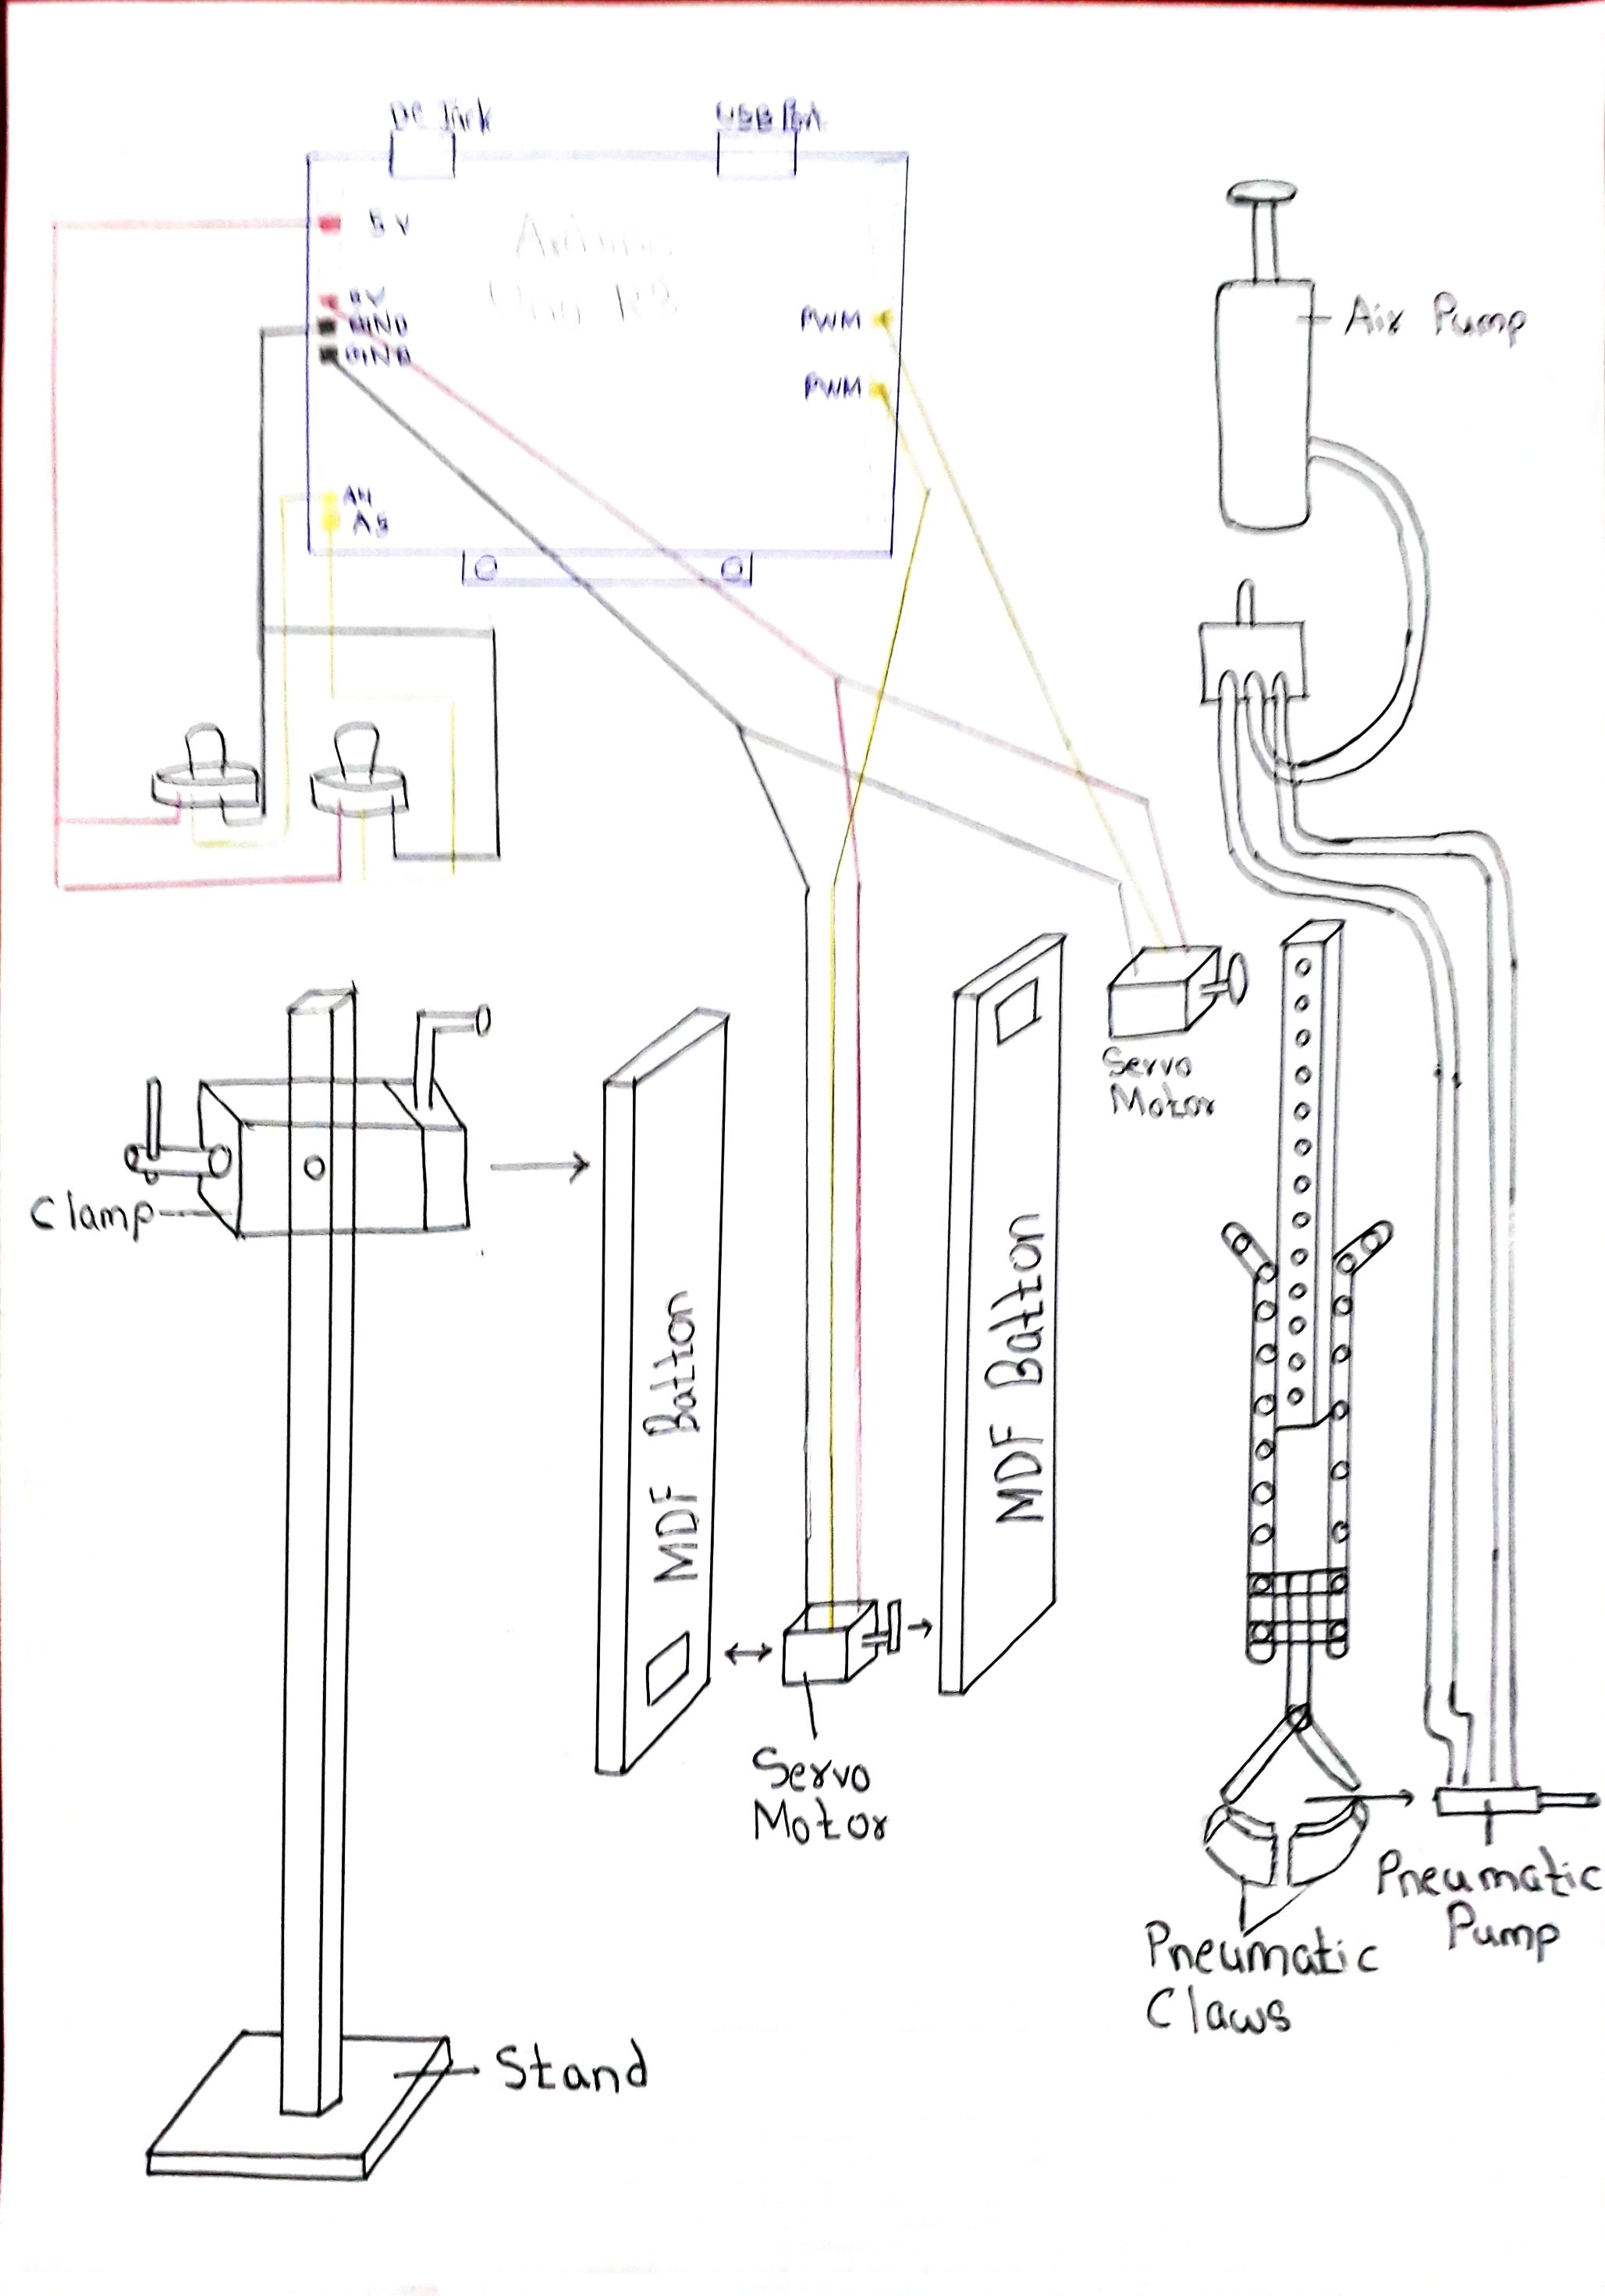 DC Jack
USB Port
5V
Arduino
Uno R3
5V
GND
GND
PWM
PWM
A4
A5
Air Pump
Servo
Motor
Clamp
MDF Batton
MDF Batton
Servo
Motor
Pneumatic
Pump
Pneumatic
Claws
Stand